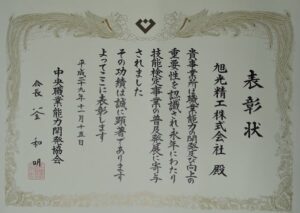 表彰状
旭光精工株式会社 殿
貴事業所は職業能力の開発及び向上の
重要性を認識され永年にわたり
技能検定事業の普及発展に寄与
されました
その功績は誠に顕著であります
よってここに表彰します
平成二十九年十一月十五日
中央職業能力開発協会
会長 釡 和明